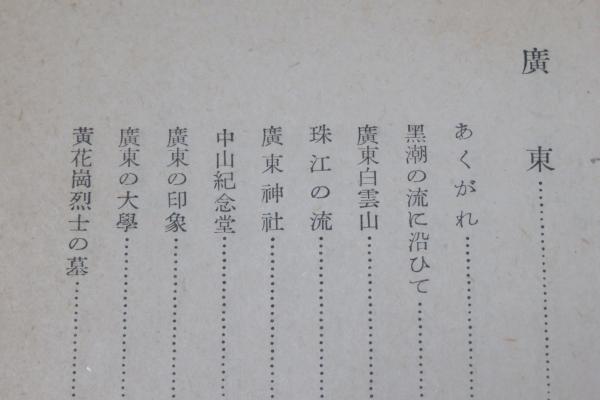 廣東
あくがれ
黑潮の流に沿ひて
廣東白雲山
珠江の流
廣東神社
中山紀念堂
廣東の印象
廣東の大學
黃花崗烈士の墓